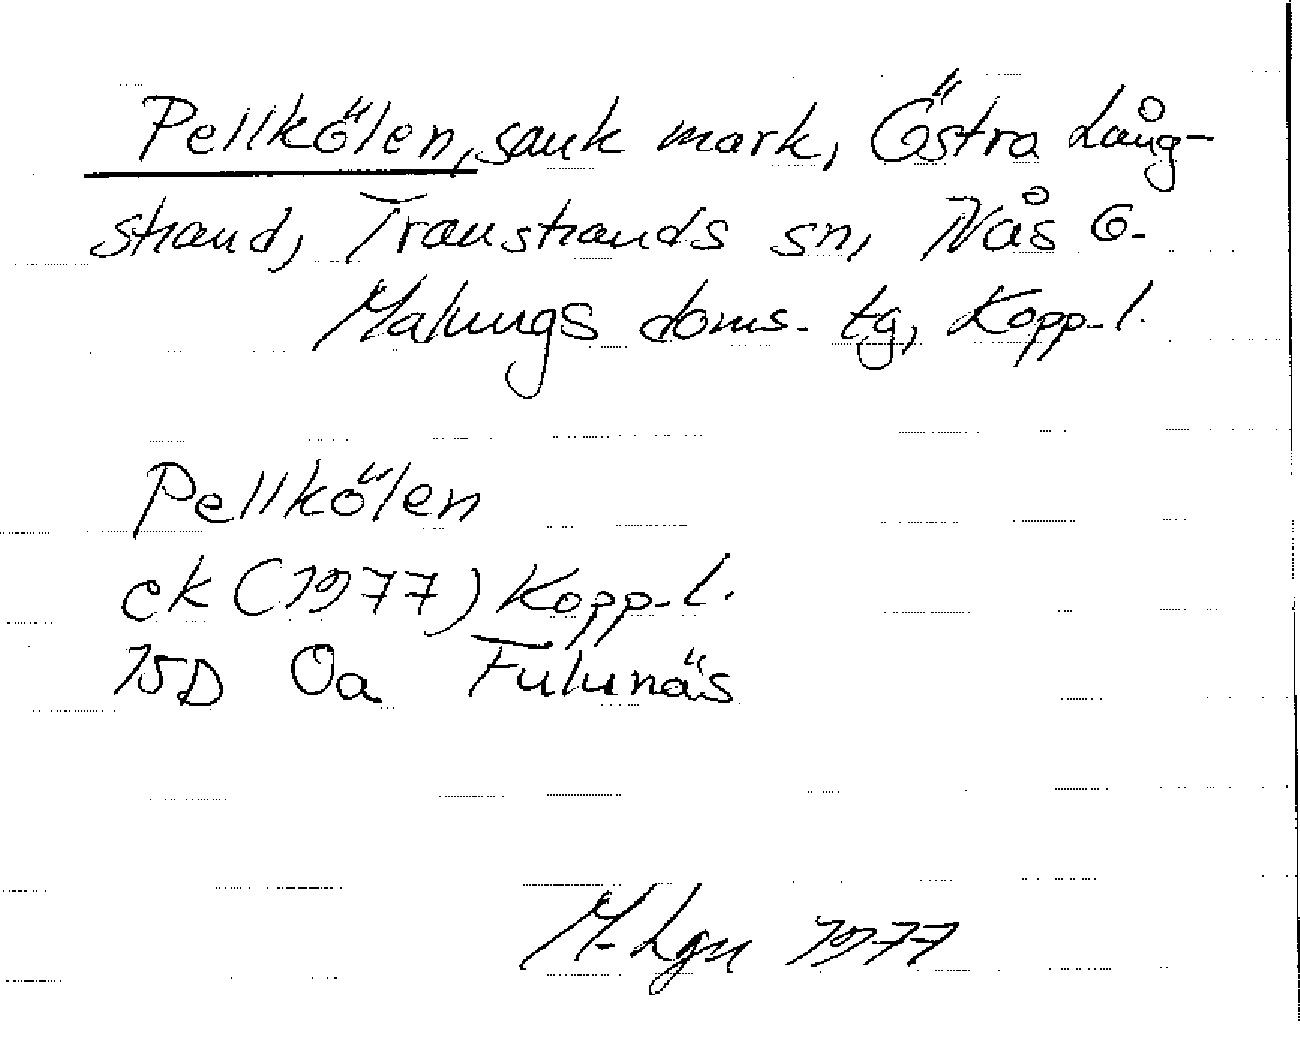 Pellkölen, sank mark, Östra Lång-
strand, Transtrands sn, Nås o.
Malungs doms. tg, Kopp. l.
Pellkölen
ek (1977) Kopp. l.
15D 0a Fulunäs
M. Lgn 1977